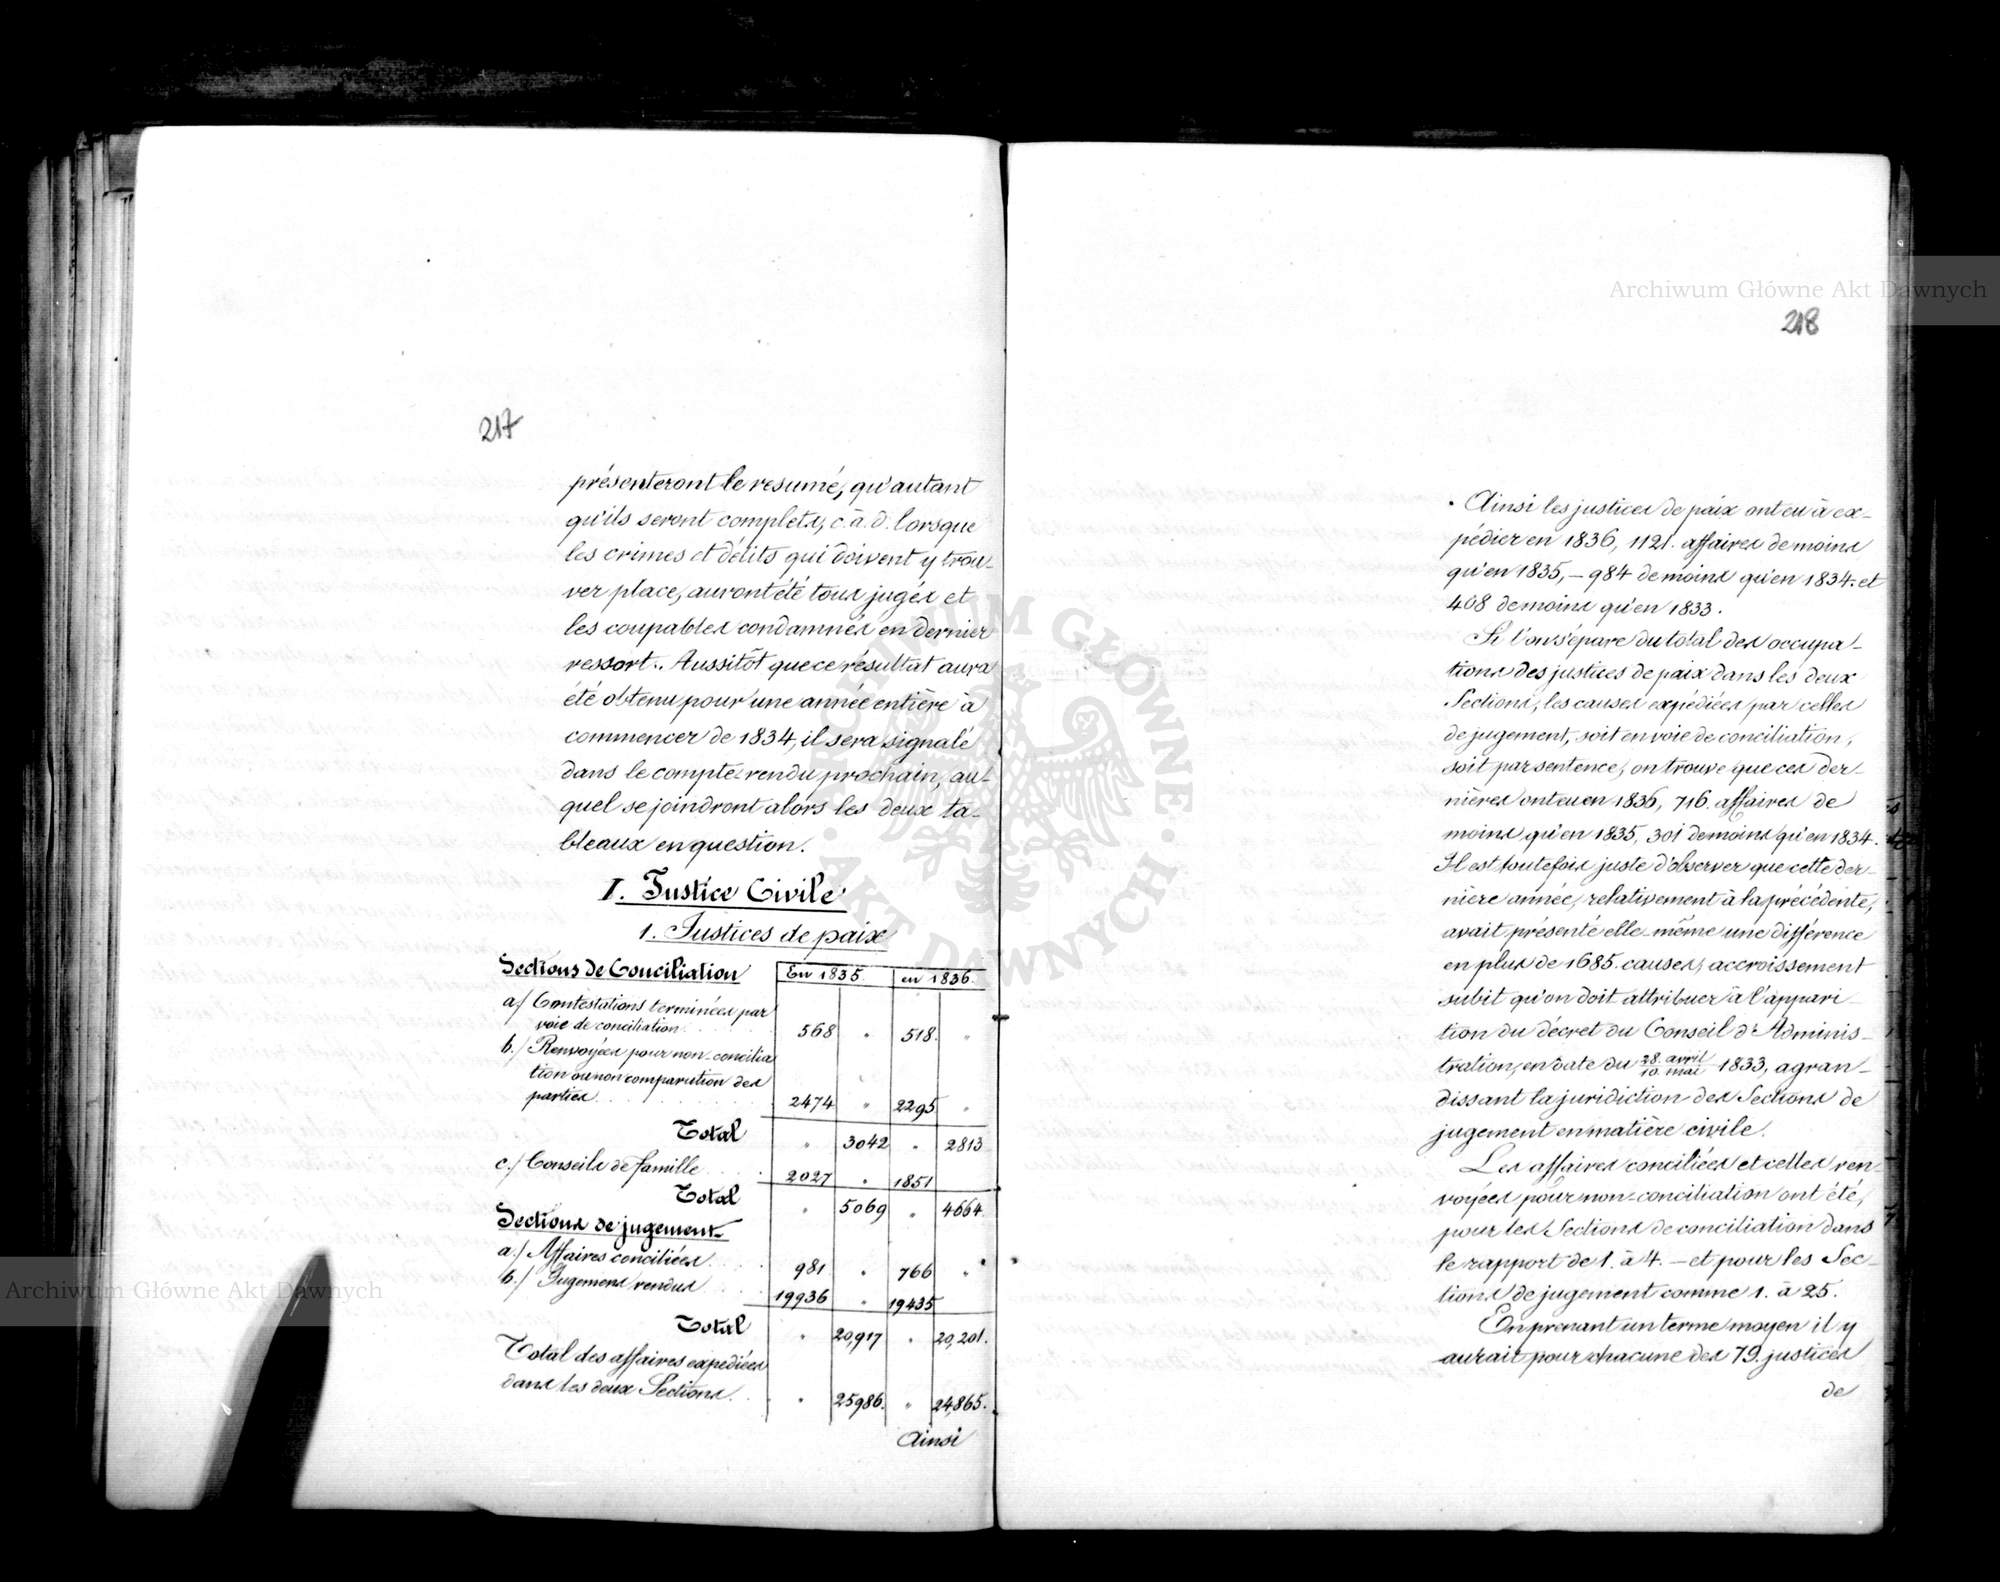 217
présenteront le resumé, qu'autant
qu'ils seront complets, c. à. d. lorsque
les crimes et délits qui doivent y trou-
ver place, auront été tous jugés et
les coupables condamnés en dernier
ressort. Aussitôt que ce résultat aura
été obtenu pour une année entière à
commencer de 1834, il sera signalé
dans le compte rendu prochain, au-
quel se joindront alors les deux ta-
bleaux en question.
I. Justice Civile
1. Justices de paix
Sections de Conciliation En 1835. en 1836.
a./ Contestations terminées par
voie de conciliation . . . . 568 " 518. "
b./ Renvoyées pour non-concilia
tion ou non comparution des
parties . . . . . . . . 2474 " 2295 "
Total " 3042 " 2813
c./ Conseils de famille . . . . 2027 " 1851
Total " 5069 " 4664.
Sections de jugement
a./ Affaires conciliées . . . . 981 " 766 "
b./ Jugemens rendus . . . . 19936 " 19435
Total " 20,917 " 20,201.
Total des affaires expediées
dans les deux Sections . . " 25,986. " 24,865.
Ainsi
Archiwum Główne Akt Dawnych
218
Ainsi les justices de paix ont eu à ex-
pédier en 1836, 1121. affaires de moins
qu'en 1835, – 984 de moins qu'en 1834. et
408 de moins qu'en 1833.
Si l'on sépare du total des occupa-
tions des justices de paix dans les deux
Sections, les causes expédiées par celles
de jugement, soit en voie de conciliation,
soit par sentence, on trouve que ces der-
nières ont eu en 1836, 716. affaires de
moins qu'en 1835, 301 de moins qu'en 1834.
Il est toutefois juste d'observer que cette der-
nière année, relativement à la précédente,
avait présenté elle-même une différence
en plus de 1685. causes, accroissement
subit qu'on doit attribuer à l'appari-
tion du décret du Conseil d'Adminis-
tration, en date du 28. avril / 10. mai 1833, agran-
dissant la juridiction des Sections de
jugement en matière civile.
Les affaires conciliées et celles ren-
voyées pour non-conciliation ont été,
pour les Sections de conciliation dans
le rapport de 1. à 4. – et pour les Sec-
tions de jugement comme 1. à 25.
En prenant un terme moyen il y
aurait pour chacune des 79. justices
de
Archiwum Główne Akt Dawnych
ARCHIWUM GŁÓWNE · AKT DAWNYCH ·